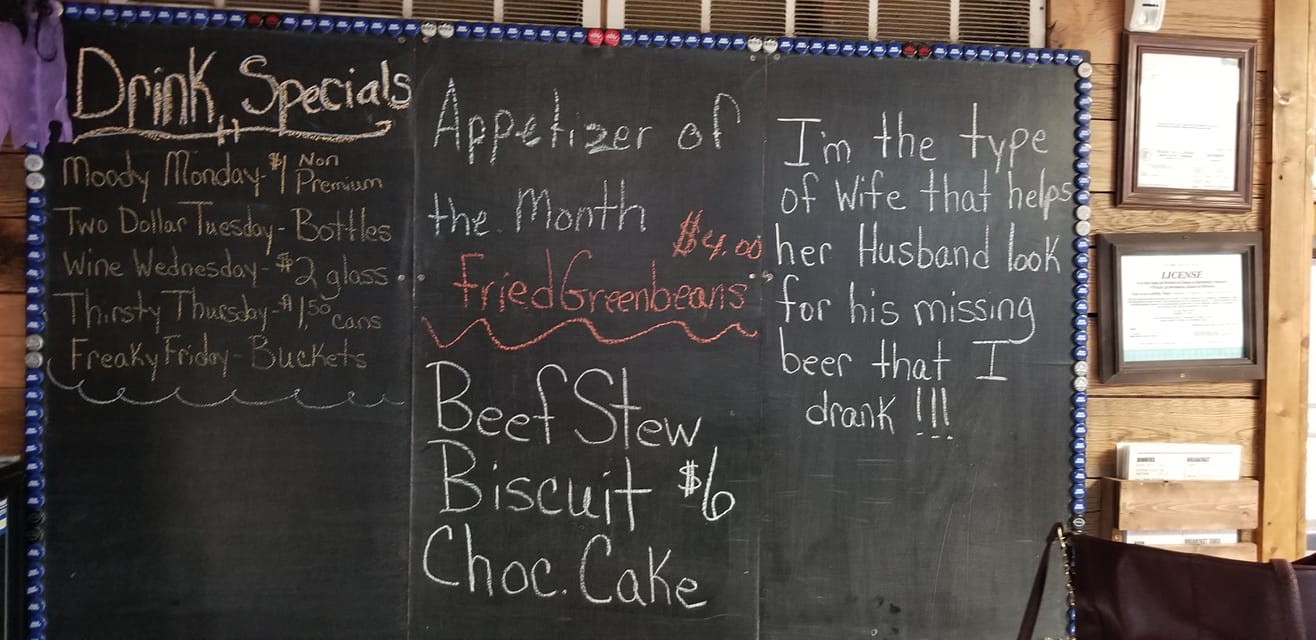 Drink Specials
Moody Monday-$1 Non
Premium
Two Dollar Tuesday- Bottles
Wine Wednesday-$2 glass
Thirsty Thursday-$1,50 cans
Freaky Friday- Buckets
Appetizer of
the Month
$4.00
Fried Greenbeans
Beef Stew
Biscuit $6
Choc. Cake
I'm the type
of Wife that helps
her Husband look
for his missing
beer that I
drank !!!
LICENSE
DINNERS BREAKFAST